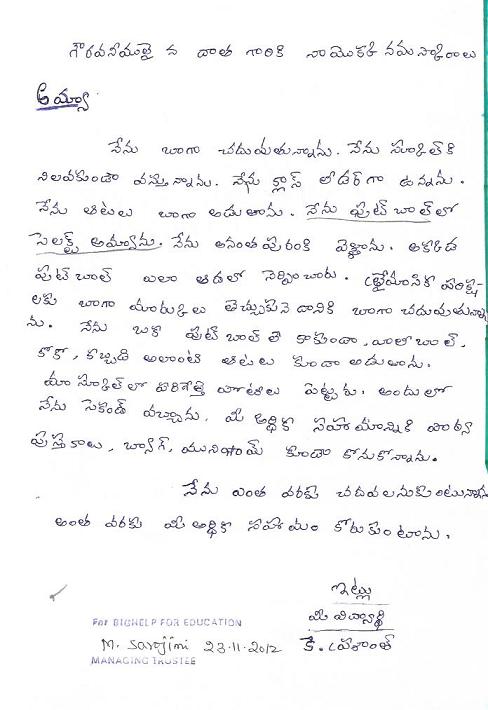 గౌరవనీయులై న దాత గారికి నాయొక్క నమస్కారాలు
అమ్మా
నేను బాగా చదువుతున్నాను. నేను స్కూల్ కి
నిలవకుండా వస్తున్నాను. నేను క్లాస్ లీడర్ గా ఉన్నాను.
నేను ఆటలు బాగా ఆడుతాను. నేను ఫుట్ బాల్ లో
సెలక్ట్ అయ్యాను. నేను అనంతపురంకి వెళ్ళాను. అక్కడ
ఫుట్ బాల్ ఎలా ఆడాలో నేర్పించారు. త్రైమాసిక పరీక్ష-
లకు బాగా మార్కులు తెచ్చుకునే దానికి బాగా చదువుతున్నా
ను. నేను ఒక ఫుట్ బాల్ తో కాకుండా, వాలీబాల్,
కోకో, కబ్బడి అలాంటి ఆటలు కుడా ఆడుతాను.
మా స్కూల్ లో పోటీలు పెట్టారు. అందులో
నేను సెకండ్ వచ్చాను. మీ ఆర్థిక సహాయాన్నికి
పుస్తకాలు, బ్యాగ్, యునిఫామ్ కుడా కొనుకొన్నాను.
నేను ఎంత వరకు చదవలనుకుంటున్నాను
అంత వరకు మీ ఆర్థిక సహాయం కోరుకుంటాను.
ఇట్లు
మీ విద్యార్థి
కె. ప్రశాంత్
For BIGHELP FOR EDUCATION
M. Sarojini 23-11-2012
MANAGING TRUSTEE